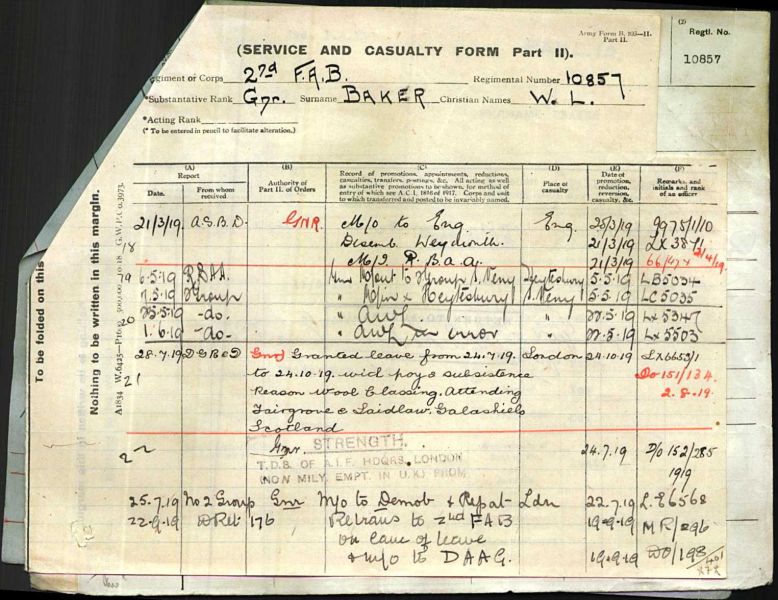 Army Form B. 103—II.
Part II.
(2)
Regtl. No.
10857
(SERVICE AND CASUALTY FORM Part II).
egiment or Corps 2nd F.A.B. Regimental Number 10857
*Substantative Rank Gnr. Surname BAKER Christian Names W. L.
*Acting Rank
(* To be entered in pencil to facilitate alteration.)
To be folded on this
Nothing to be written in this margin.
(A)
Report
Date.
From whom received
(B)
Authority of Part II. of Orders
(C)
Record of promotions, appointments, reductions, casualties, transfers, postings, &c. All acting as well as substantive promotions to be shown, for method of entry of which see A.C.I. 1816 of 1917. Corps and unit to which transferred and posted to be invariably named.
(D)
Place of casualty
(E)
Date of promotion, reduction, reversion, casualty, &c.
(F)
Remarks, and initials and rank of an officer
21/3/19 A.S.B.D. GNR. M/O to Eng. Eng. 3/19
Disemb Weymouth. 21/3/19
M/I R.B.A.A. 21/3/19
6.5.19 RBAA. to Group Heytesbury 5.5.19 LB5034
7.5.19 Group " Heytesbury 5.5.19 LC5035
-do- " AWL " 5.19 Lx 5347
1.6.19 -do- " AWL error " 5.19 Lx 5503
28.7.19 DGBED Gnr Granted leave from 24.7.19. London 24.10.19 LX6653/1
to 24.10.19. with pay & subsistence Do 151/134
Reason Wool Classing. Attending 2.8.19.
Fairgrove & Laidlaw. Galashiels
Scotland
Gnr STRENGTH. 24.7.19 D/O 152/285
T.D.B. OF A.I.F. HDQRS. LONDON 1919
(NON MILY. EMPT. IN U.K) FROM
25.7.19 No 2 Group Gnr M/o to Demob & Repat- Ldn 22.7.19 L.E6568
22-9-19 176 Retrans to 2nd FAB 19-9-19 MR/296
on canc of leave
& m/o to DAAG. 19-9-19